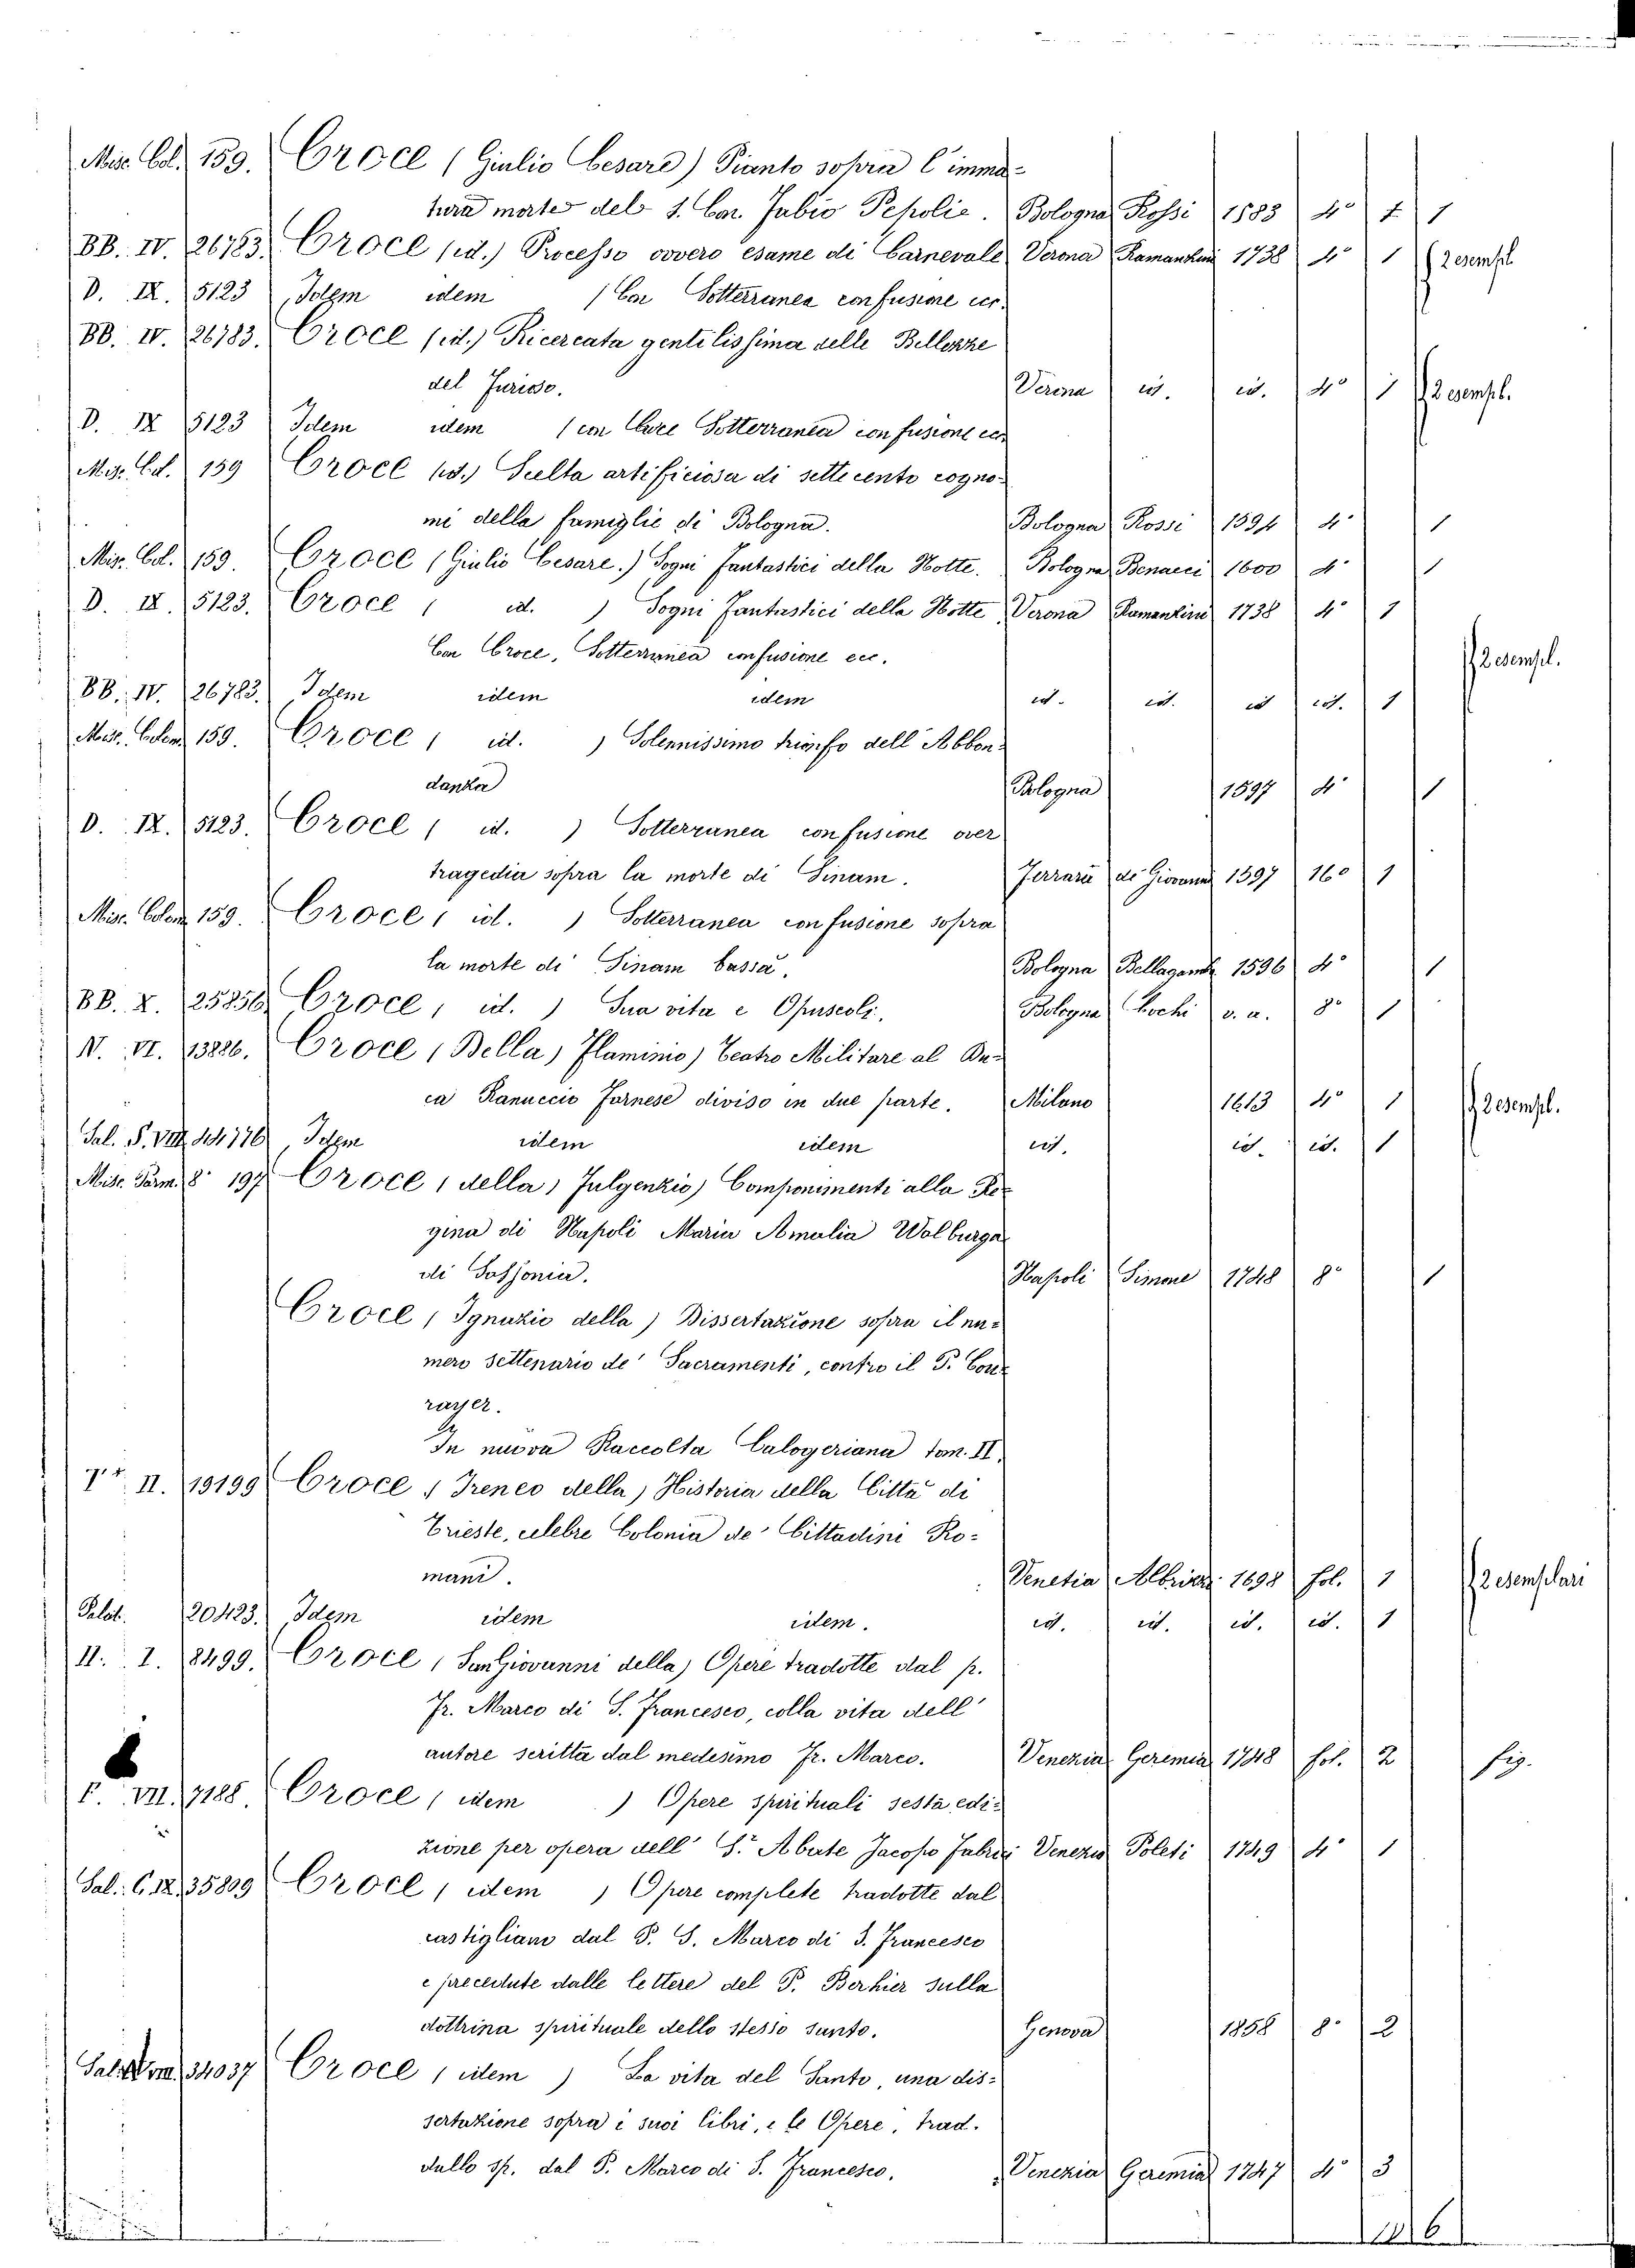 Misc. Col. 159. Croce (Giulio Cesare) Pianto sopra l'imma-
tura morte del S. Con. Fabio Pepoli. Bologna Rossi 1583 4° 1 1
BB. IV. 26783. Croce (id.) Processo ovvero esame di Carnevale Verona Ramanzini 1738 4° 1 2 esempl
D. IX. 5123 Idem idem (Con Sotterranea confusione ecc.
BB. IV. 26783. Croce (id.) Ricercata gentilissima delle Bellezze
del Furioso. Verona id. id. 4° 1 2 esempl.
D. IX 5123 Idem idem (con Croce Sotterranea confusione ecc
Misc. Col. 159 Croce (id.) Scelta artificiosa di settecento cogno-
mi della famiglie di Bologna. Bologna Rossi 1594 4° 1
Misc. Col. 159. Croce (Giulio Cesare.) Sogni fantastici della Notte. Bologna Benacci 1600 4° 1
D. IX. 5123. Croce ( id. ) Sogni Fantastici della Notte Verona Ramanzini 1738 4° 1
Con Croce, Sotterranea confusione ecc. 2 esempl.
BB. IV. 26783. Idem idem idem id. id. id id. 1
Misc. Colom. 159. Croce ( id. ) Solennissimo trionfo dell'Abbon-
danza Bologna 1597 4° 1
D. IX. 5123. Croce ( id. ) Sotterranea confusione over
tragedia sopra la morte di Sinam. Ferrara de Giovanni 1597 16° 1
Misc. Colom. 159. Croce ( id. ) Sotterranea confusione sopra
la morte di Sinam bassà. Bologna Bellagamb. 1596 4° 1
BB. X. 25856 Croce, id. ) Sua vita e Opuscoli. Bologna Cochi v. a. 8° 1
N. VI. 13886. Croce (Bella) Flaminio) Teatro Militare al Du-
ca Ranuccio Fornese diviso in due parte. Milano 1613 4° 1 2 esempl.
Sal. S. VIII. 776 Idem idem idem id. id. id. 1
Misc. Farm. 8° 197 Croce (della) Fulgenzio) Componimenti alla Re-
gina di Napoli Maria Amalia Walburga
di Sassonia. Napoli Simone 1748 8° 1
Croce (Ignazio della) Dissertazione sopra il nu-
mero settenario de' Sacramenti, contro il P. Cou-
rayer.
In nuova Raccolta Calogeriana tom. II.
II. 19199 Croce (Ireneo della) Historia della Città di
Trieste, celebre Colonia de' Cittadini Ro-
mani. Venetia Albrizzi 1698 fol. 1 2 esemplari
Palat. 20423. Idem idem idem. id. id. id. id. 1
II. I. 8499. Croce (San Giovanni della) Opere tradotte dal p.
Fr. Marco di S. Francesco, colla vita dell'
autore scritta dal medesimo Fr. Marco. Venezia Geremia 1748 fol. 2 fig.
F. VII. 7188. Croce (idem ) Opere spirituali sesta edi-
zione per opera dell' S.r Abate Jacopo Fabrizi Venezia Poleti 1749 4° 1
Sal. C. IX. 35809 Croce (idem ) Opere complete tradotte dal
castigliano dal P. S. Marco di S. Francesco
e precedute dalle lettere del P. Berhier sulla
dottrina spirituale dello stesso santo. Genova 1858 8° 2
34037 Croce (idem ) La vita del Santo, una dis-
sertazione sopra i suoi libri, e le Opere, trad.
dallo sp. dal P. Marco di S. Francesco. Venezia Geremia 1747 4° 3